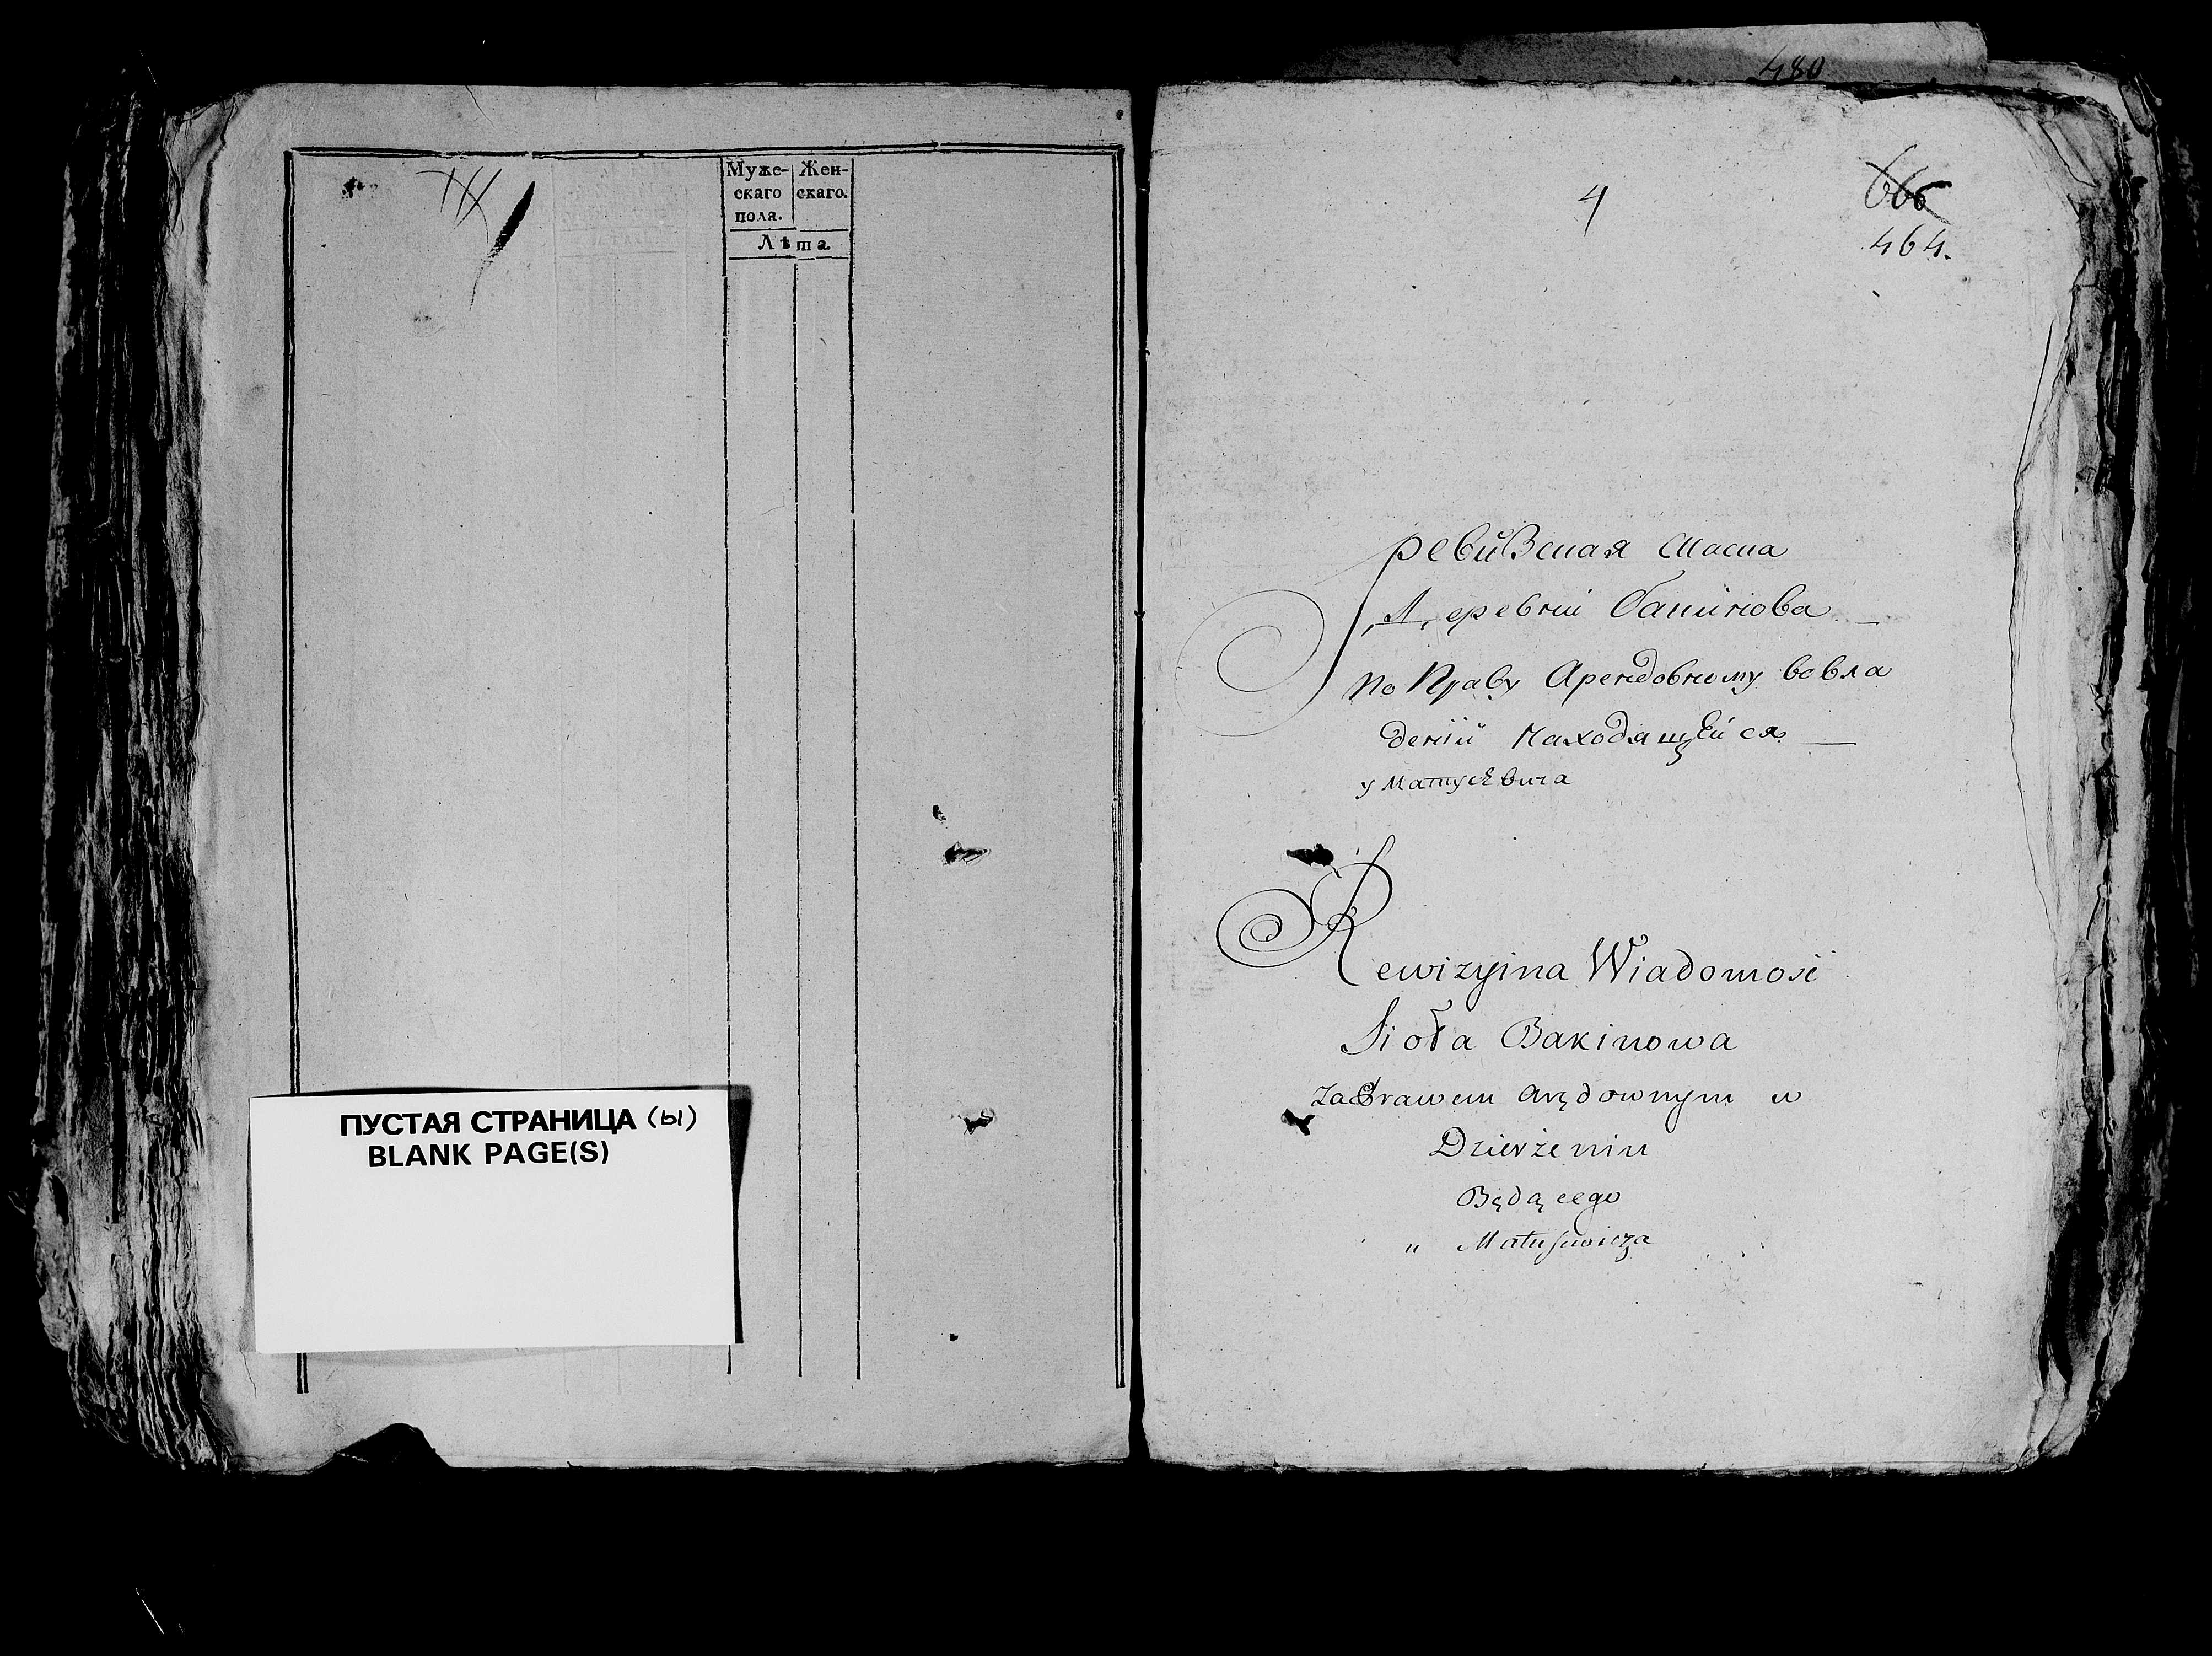 Муже-
скаго
пола.
Жен-
скаго.
Лѣта
ПУСТАЯ СТРАНИЦА (ы)
BLANK PAGE(S)
480
4
666
464.
ревизская Скаска
Деревни бакинова
по Праву Арендовному вовла
дении находящейся
у Матусевича
Rewizyina Wiadomość
Sioła Bakinowa
za Prawem Arędownym w
Dzierżeniu
Będącego
u Matusewicza